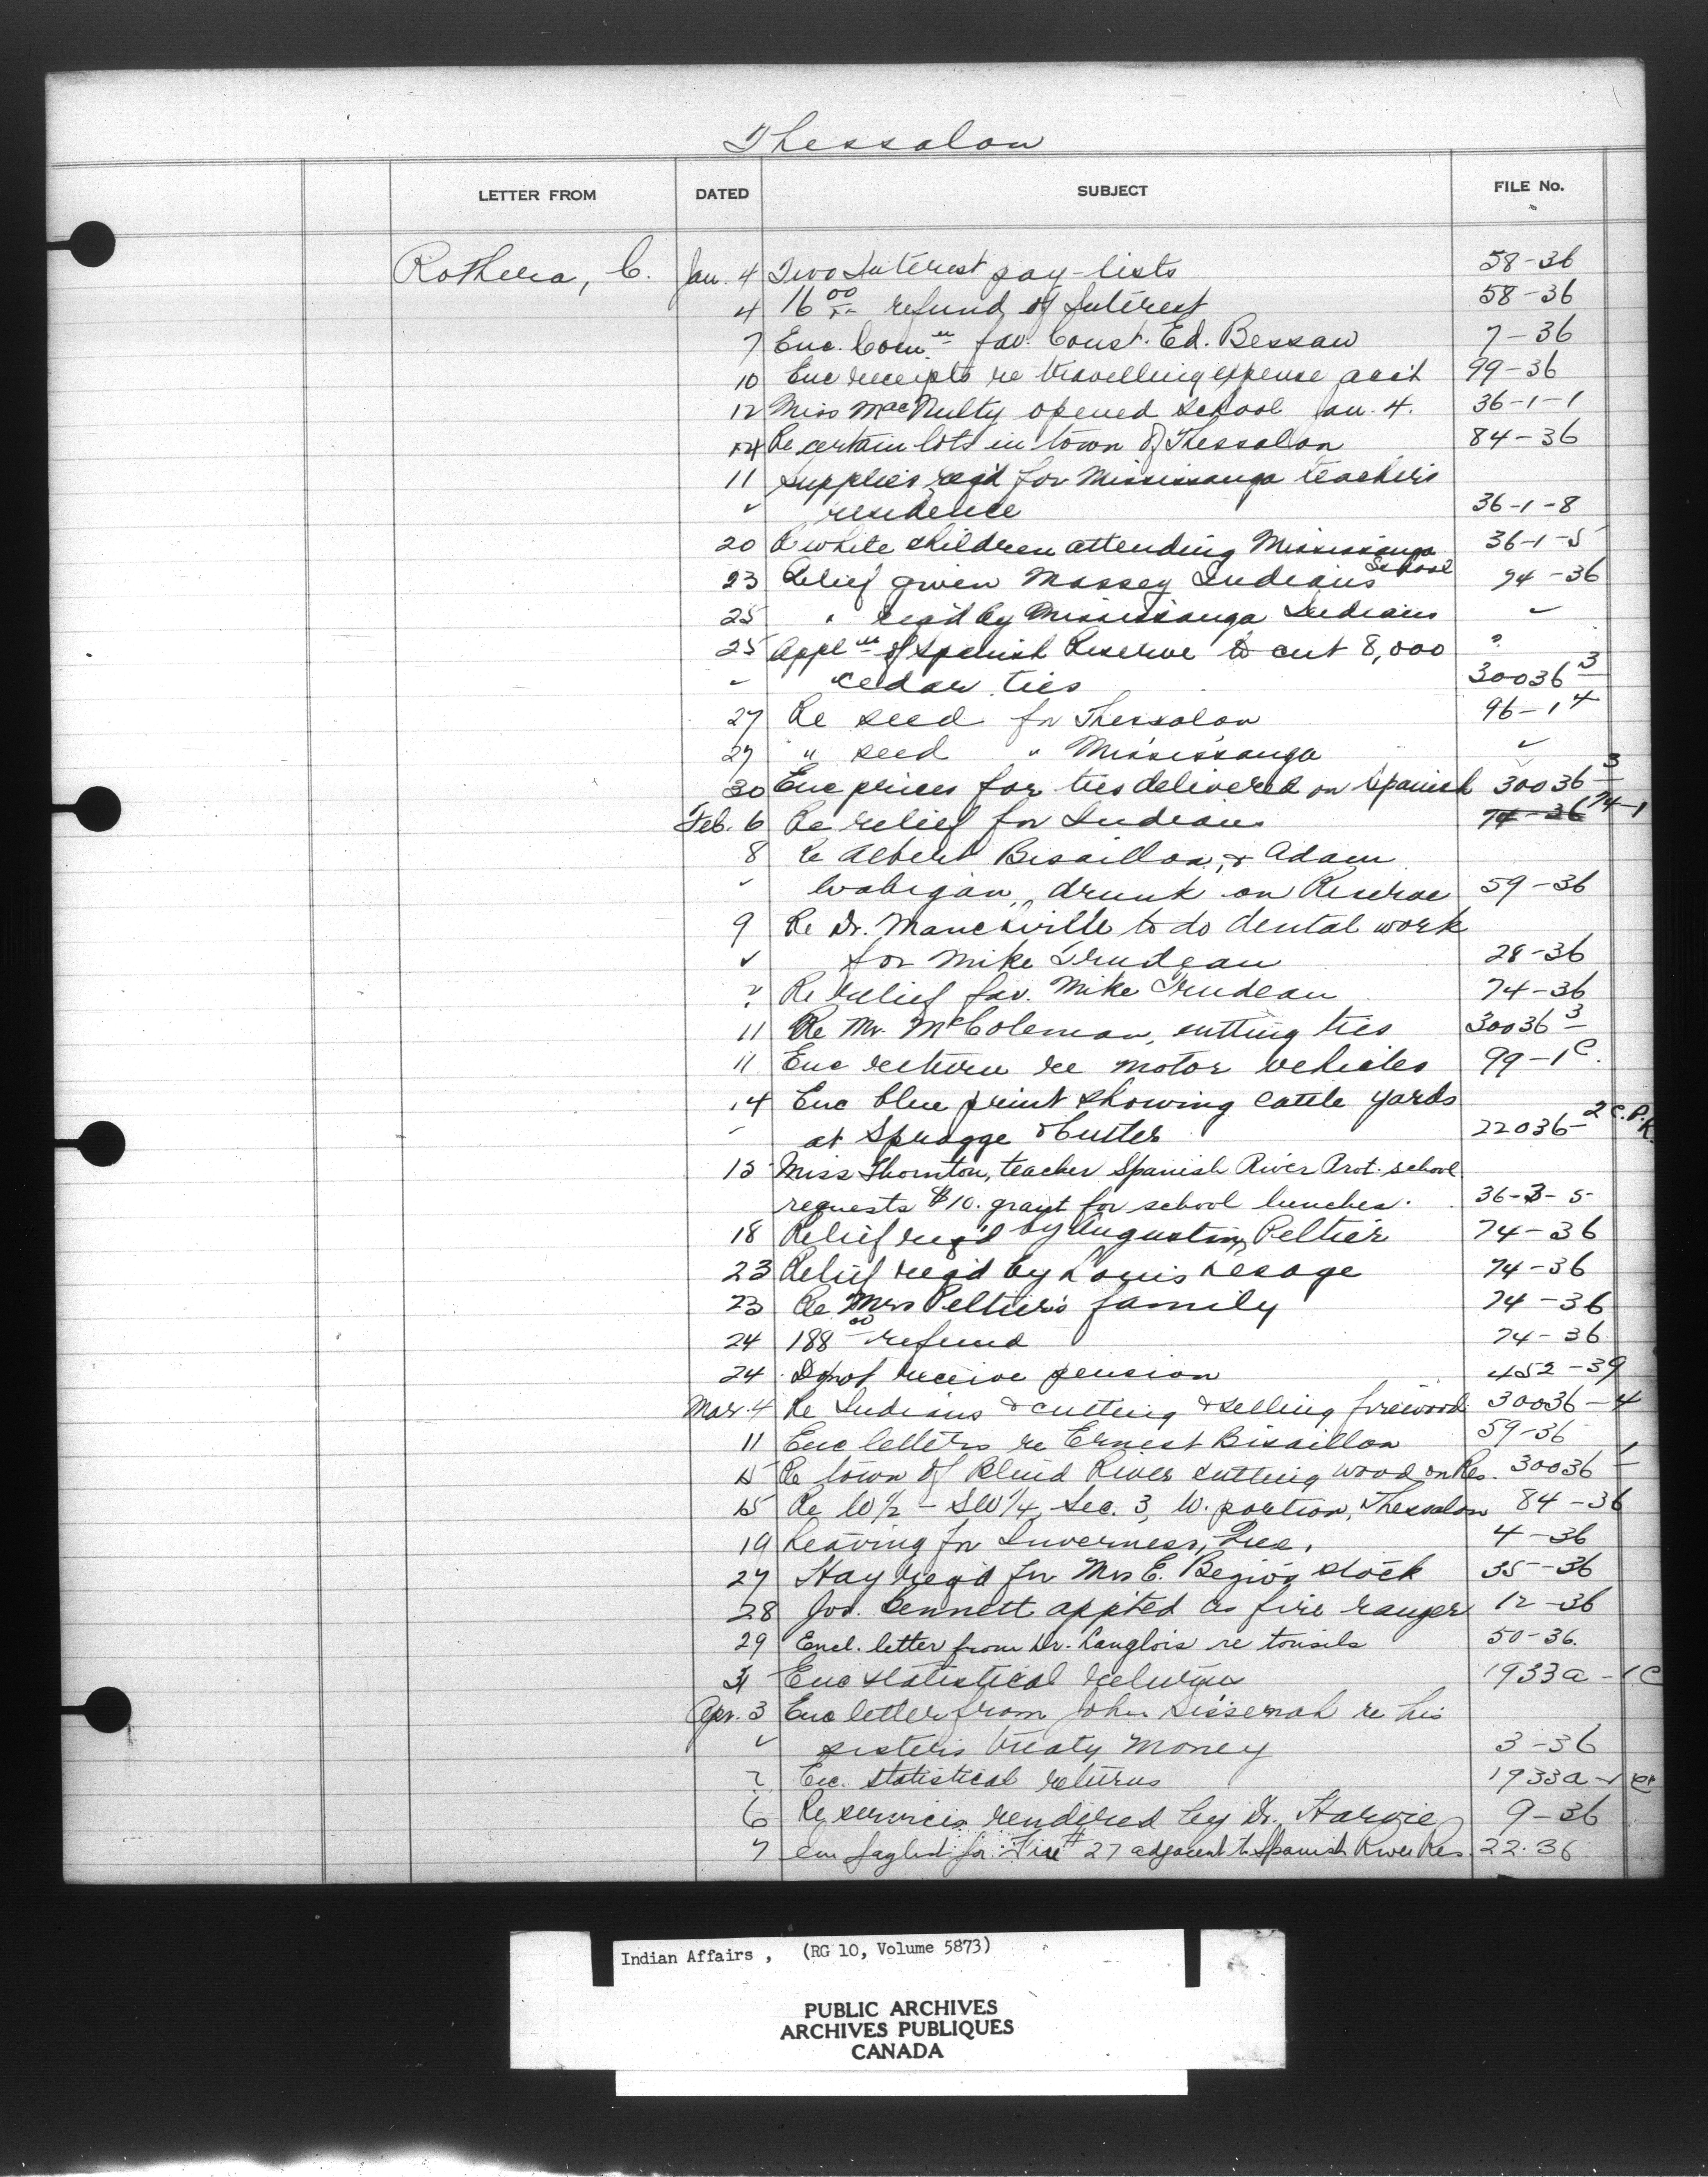 Thessalon
LETTER FROM DATED SUBJECT FILE No.
Rothera, C. Jan. 4 Two Interest pay-lists 58-36
4 16 00 refund of Interest 58-36
7 Enc. Com. fav. Const. Ed. Bessaw 7-36
10 Enc receipts re travelling expense acc't 99-36
12 Miss MacNulty opened school Jan. 4. 36-1-1
14 Re certain lots in town of Thessalon 84-36
11 Supplies reqd for Mississauga teacher's
" residence 36-1-8
20 Re white children attending Mississauga 36-1-5
School
23 Relief given Massey Indians 74-36
25 " reqd by Mississauga Indians "
25 Appln of Spanish Reserve to cut 8,000 "
" cedar ties 30036-3
27 Re seed for Thessalon 96-14
27 " seed " Mississauga "
30 Enc prices for ties delivered on Spanish 30036-3
Feb. 6 Re relief for Indians 74-36 74-1
8 Re Albert Bisaillon, & Adam
" Wabigan, drunk on Reserve 59-36
9 Re Dr. Manchville to do dental work
" for Mike Trudeau 28-36
" Re relief fav. Mike Trudeau 74-36
11 Re Mr. McColeman, cutting ties 30036-3
11 Enc return re motor vehicles 99-1C.
14 Enc blue print showing cattle yards
" at Spragge & Cutler 22036-2 C.P.R.
15 Miss Thornton, teacher Spanish River Prot. school
requests $10. grant for school lunches. 36-3-5
18 Relief reqd by Augustin Peltier 74-36
23 Relief reqd by Louis Lesage 74-36
23 Re Mrs Peltier's family 74-36
24 188 00 refund 74-36
24 Do not receive pension 452-39
Mar. 4 Re Indians & cutting & selling firewood 30036-4
11 Enc letters re Ernest Bisaillon 59-36
15 Re town of Blind River cutting wood on Res. 30036-1
15 Re W 1/2 - SW 1/4, Sec. 3, W. portion, Thessalon 84-36
19 Leaving for Inverness, Que. 4-36
27 Hay reqd for Mrs E. stock 35-36
28 Jos. Bennett appted as fire ranger 12-36
29 Encl. letter from Dr. Langlois re tonsils 50-36.
31 Enc statistical returns 1933a-1C
Apr. 3 Enc letter from John Sissenah re his
" sister's treaty money 3-36
" Enc. statistical returns 1933a-1C
6 Re services rendered by Dr. Harvie 9-36
7 for Fire #27 adjacent to Spanish River Res. 22-36
Indian Affairs , (RG 10, Volume 5873)
PUBLIC ARCHIVES
ARCHIVES PUBLIQUES
CANADA